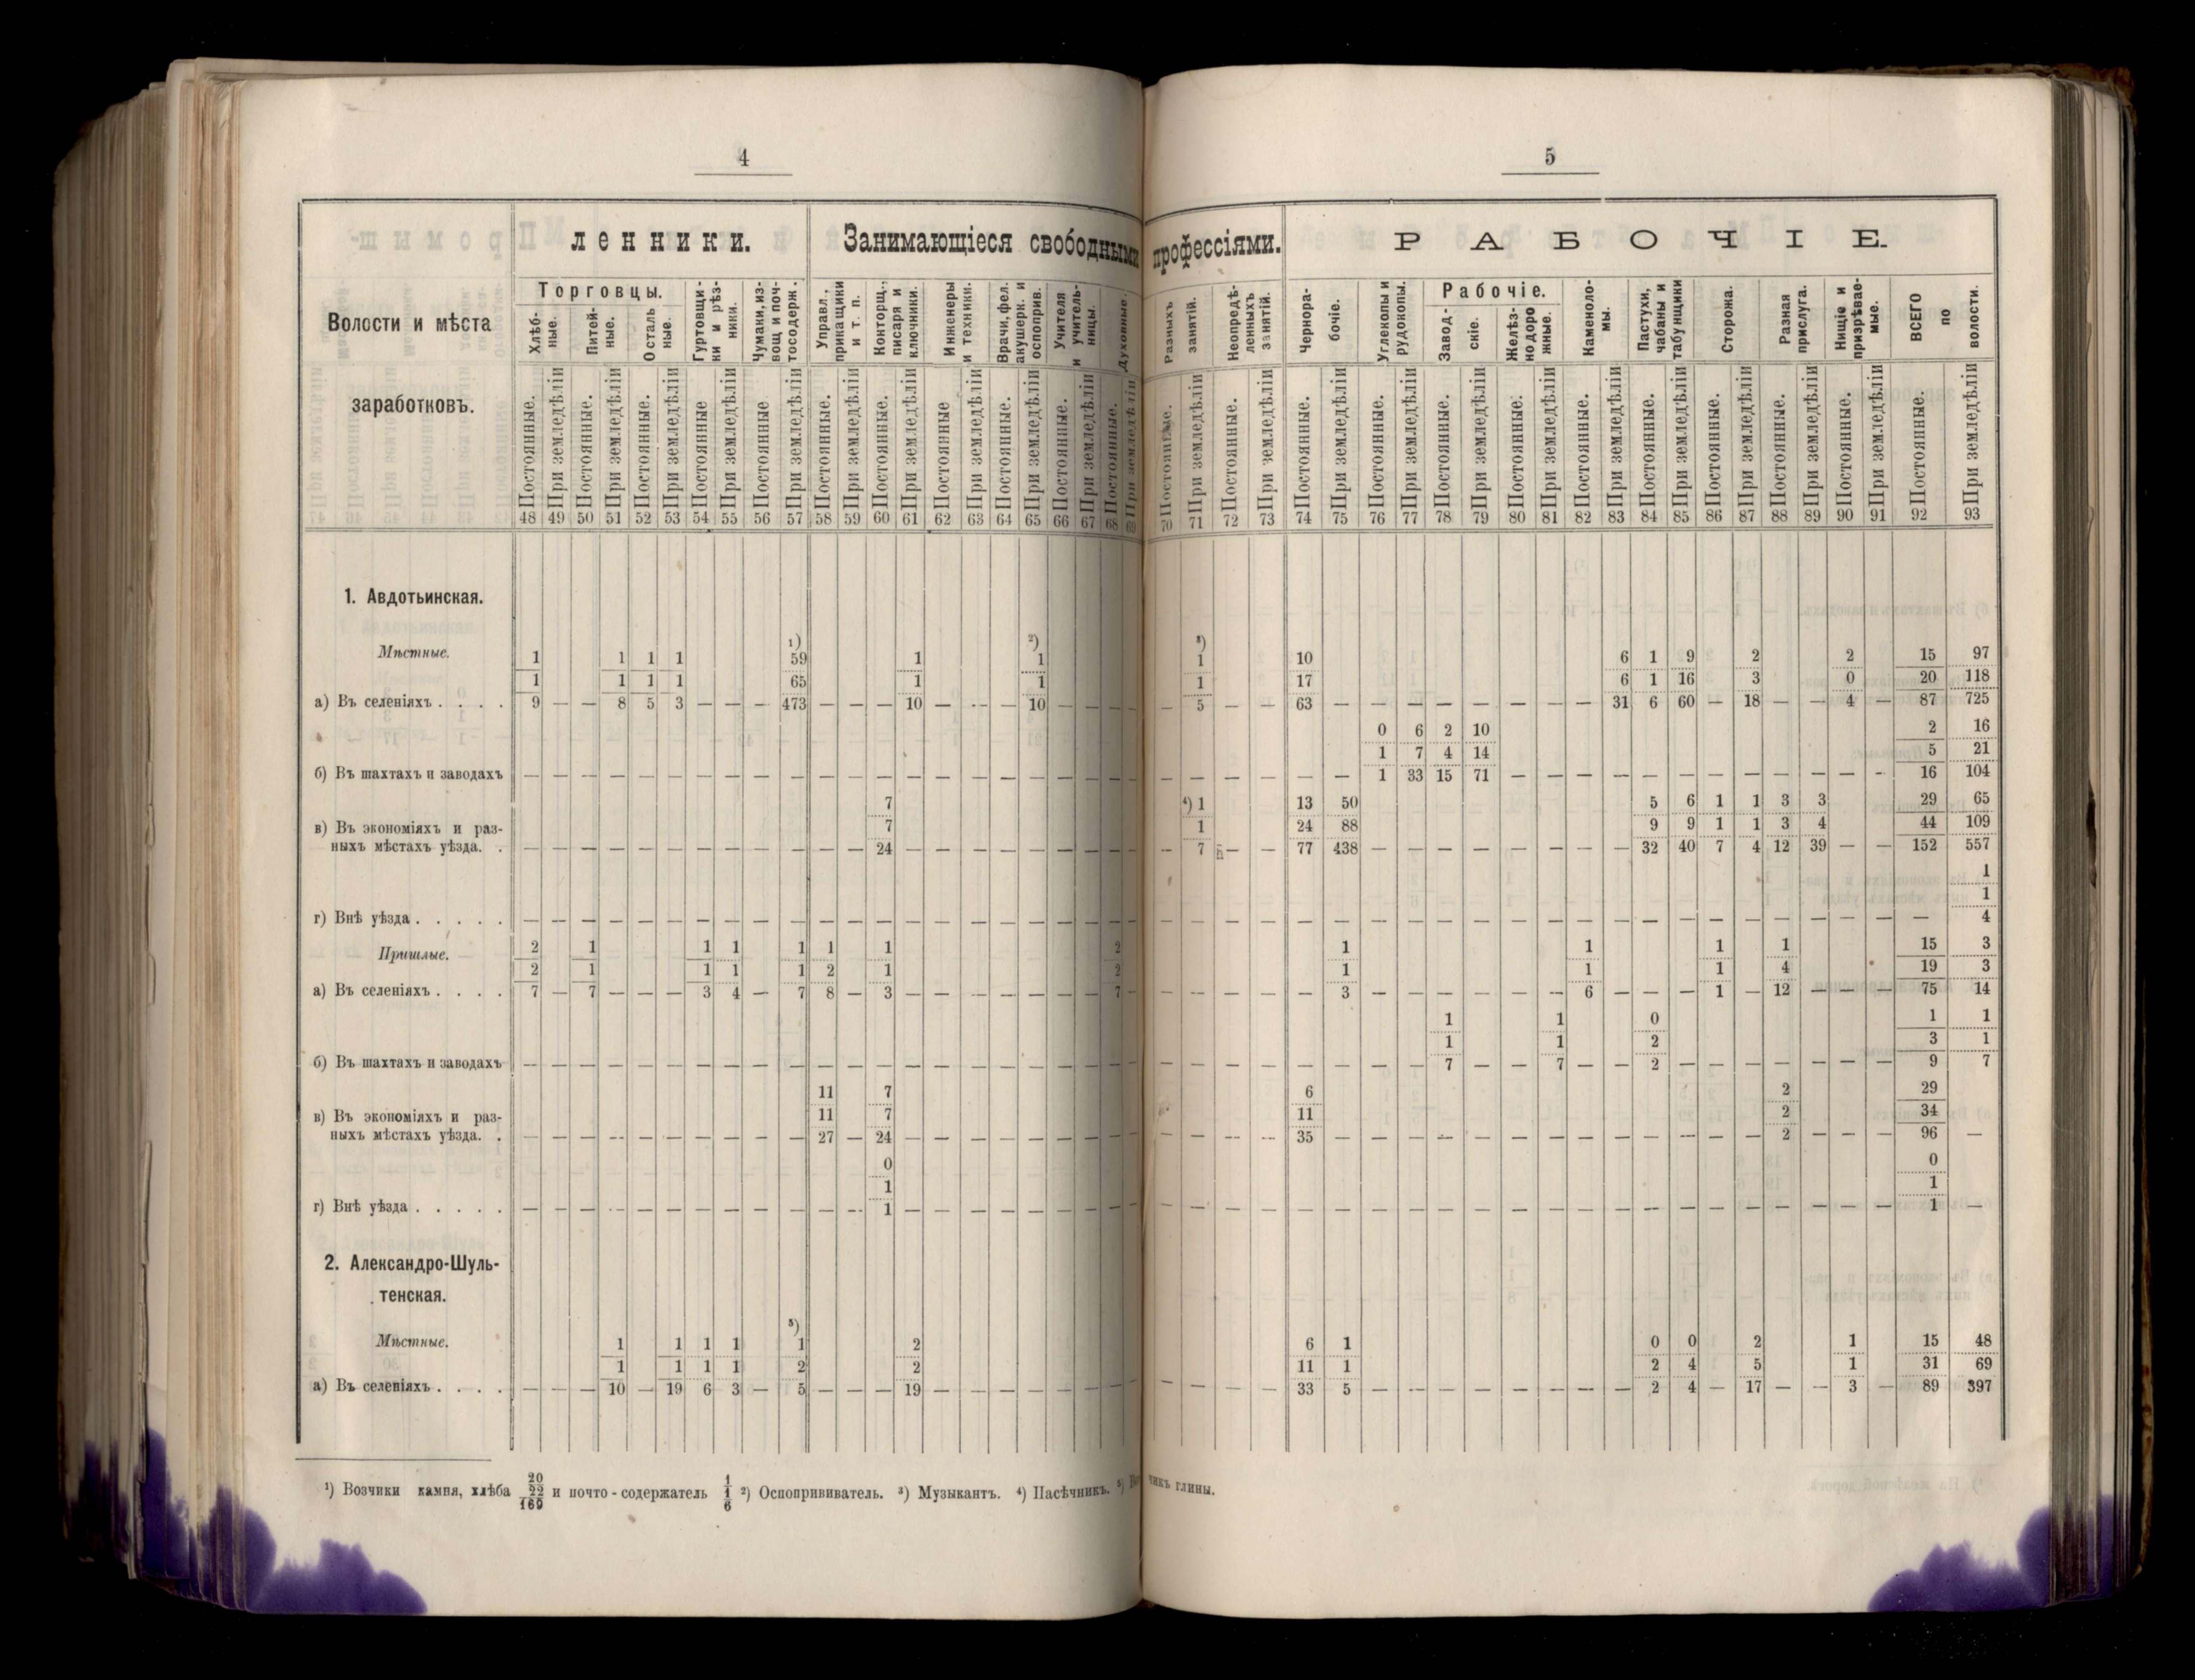 4
5
ленники.
Занимающіеся свободными профессіями.
РАБОЧІЕ.
Волости и мѣста
заработковъ.
Торговцы.
Хлѣб-
ные.
Питей-
ные.
Осталь
ные.
Гуртовщи-
ки и рѣз-
ники.
Чумаки, из-
вощ. и поч-
тосодерж.
Управл.,
прикащики
и т. п.
Конторщ.,
писаря и
ключники.
Инженеры
и техники.
Врачи, фел.
акушерк. и
оспоприв.
Учителя
и учитель-
ницы.
Духовные.
Разныхъ
занятій.
Неопредѣ-
ленныхъ
занятій.
Чернора-
бочіе.
Углекопы и
рудокопы.
Рабочіе.
Завод-
скіе.
Желѣз-
нодоро
жные.
Каменоло-
мы.
Пастухи,
чабаны и
табунщики
Сторожа.
Разная
прислуга.
Нищіе и
призрѣвае-
мые.
ВСЕГО
по
волости.
Постоянные. При земледѣліи Постоянные. При земледѣліи Постоянные. При земледѣліи Постоянные При земледѣліи Постоянные При земледѣліи Постоянные. При земледѣліи Постоянные. При земледѣліи Постоянные При земледѣліи Постоянные. При земледѣліи Постоянные. При земледѣліи Постоянные. При земледѣліи
Постоянные. При земледѣліи Постоянные. При земледѣліи Постоянные. При земледѣліи Постоянные. При земледѣліи Постоянные. При земледѣліи Постоянные. При земледѣліи Постоянные. При земледѣліи Постоянные. При земледѣліи Постоянные. При земледѣліи Постоянные. При земледѣліи Постоянные. При земледѣліи Постоянные. При земледѣліи
48 49 50 51 52 53 54 55 56 57 58 59 60 61 62 63 64 65 66 67 68 69 70 71 72 73 74 75 76 77 78 79 80 81 82 83 84 85 86 87 88 89 90 91 92 93
1. Авдотьинская.
¹) ²) ³)
Мѣстные. 1 1 1 1 59 1 1 1 10 6 1 9 2 2 15 97
1 1 1 1 65 1 1 1 17 6 1 16 3 0 20 118
а) Въ селеніяхъ . . . . 9 — — 8 5 3 — — — 473 — — — 10 — — — 10 — — — — — 5 — — 63 — — — — — — — — 31 6 60 — 18 — — 4 — 87 725
0 6 2 10 2 16
1 7 4 14 5 21
б) Въ шахтахъ и заводахъ — — — — — — — — — — — — — — — — — — — — — — — — — — — — 1 33 15 71 — — — — — — — — — — — — 16 104
7 ⁴) 1 13 50 5 6 1 1 3 3 29 65
в) Въ экономіяхъ и раз- 7 1 24 88 9 9 1 1 3 4 44 109
ныхъ мѣстахъ уѣзда. . — — — — — — — — — — — — 24 — — — — — — — — — — 7 — — 77 438 — — — — — — — — 32 40 7 4 12 39 — — 152 557
1
1
г) Внѣ уѣзда . . . . . — — — — — — — — — — — — — — — — — — — — — — — — — — — — — — — — — — — — — — — — — — — — — 4
2 1 1 1 1 1 1 2 1 1 1 1 15 3
Пришлые.
2 1 1 1 1 2 1 2 1 1 1 4 19 3
а) Въ селеніяхъ . . . . 7 — 7 — — — 3 4 — 7 8 — 3 — — — — — — — 7 — — — — — — 3 — — — — — — 6 — — — 1 — 12 — — — 75 14
1 1 0 1 1
1 1 2 3 1
б) Въ шахтахъ и заводахъ — — — — — — — — — — — — — — — — — — — — — — — — — — — — — — 7 — — 7 — — 2 — — — — — — — 9 7
11 7 6 2 29
в) Въ экономіяхъ и раз- 11 7 11 2 34
ныхъ мѣстахъ уѣзда. . — — — — — — — — — — 27 — 24 — — — — — — — — — — — — — 35 — — — — — — — — — — — — — 2 — — — 96 —
0 0
1 1
г) Внѣ уѣзда . . . . . — — — — — — — — — — — — 1 — — — — — — — — — — — — — — — — — — — — — — — — — — — — — — — 1 —
2. Александро-Шуль-
тенская.
⁵)
Мѣстные. 1 1 1 1 1 2 6 1 0 0 2 1 15 48
1 1 1 1 2 2 11 1 2 4 5 1 31 69
а) Въ селеніяхъ . . . . — — — 10 — 19 6 3 — 5 — — — 19 — — — — — — — — — — — — 33 5 — — — — — — — — 2 4 — 17 — — 3 — 89 397
¹) Возчики камня, хлѣба 20/22/169 и почто-содержатель 1/1/6 ²) Оспопрививатель. ³) Музыкантъ. ⁴) Пасѣчникъ. ⁵) глины.